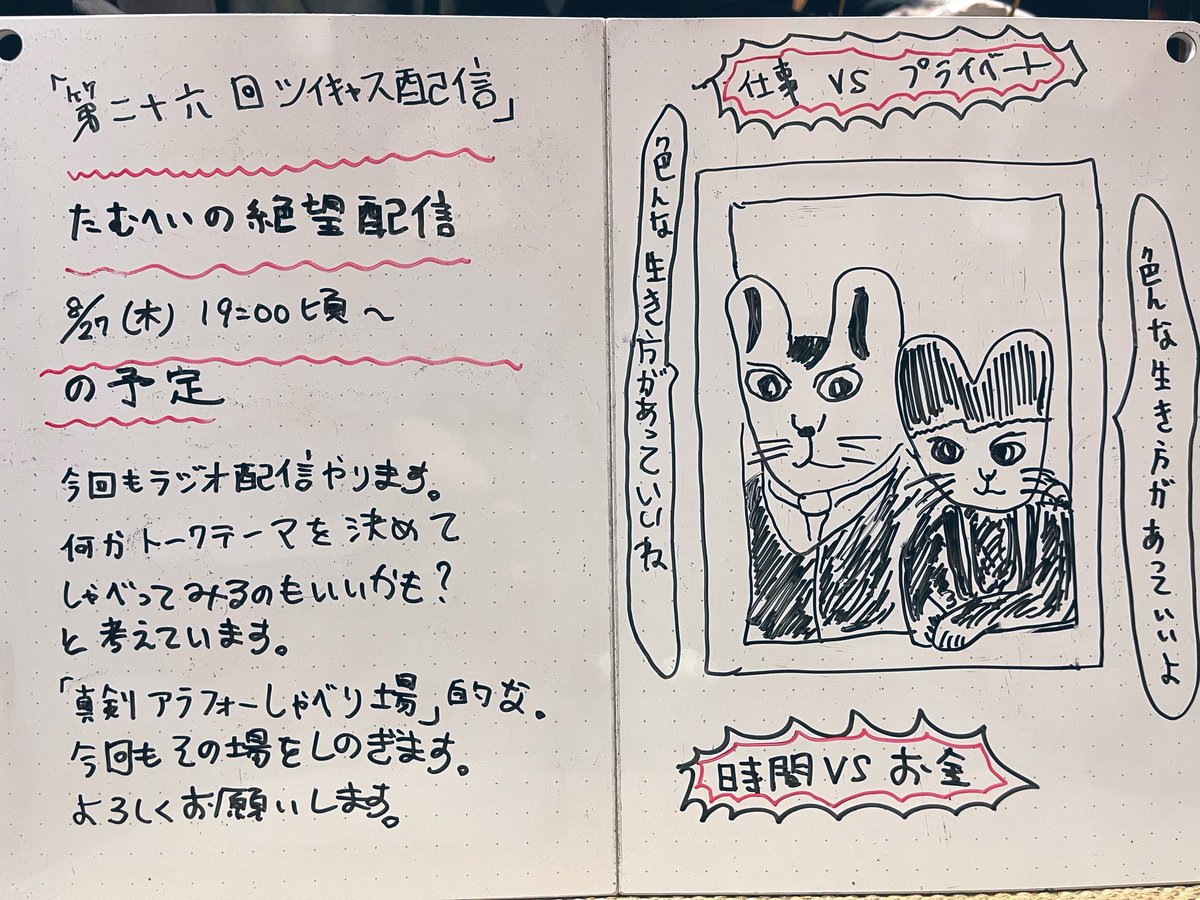 「第二十六回ツイキャス配信」
たむへいの絶望配信
8/27(木) 19:00頃～
の予定
今回もラジオ配信やります。
何かトークテーマを決めて
しゃべってみるのもいいかも?
と考えています。
「真剣アラフォーしゃべり場」的な。
今回もその場をしのぎます。
よろしくお願いします。
仕事 VS プライベート
色んな生き方があっていいね
色んな生き方があっていいよ
時間 VS お金